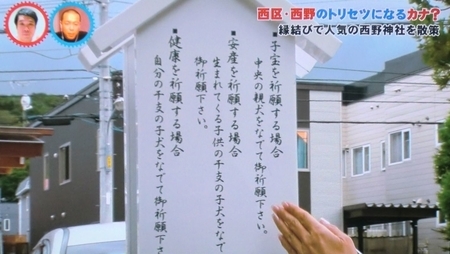 西区・西野のトリセツになるカナ?
縁結びで人気の西野神社を散策
・子宝を祈願する場合
中央の親犬をなでて御祈願下さい。
・安産を祈願する場合
生まれてくる子供の干支の子犬をなで
御祈願下さい。
・健康を祈願する場合
自分の干支の子犬をなでて御祈願下さ